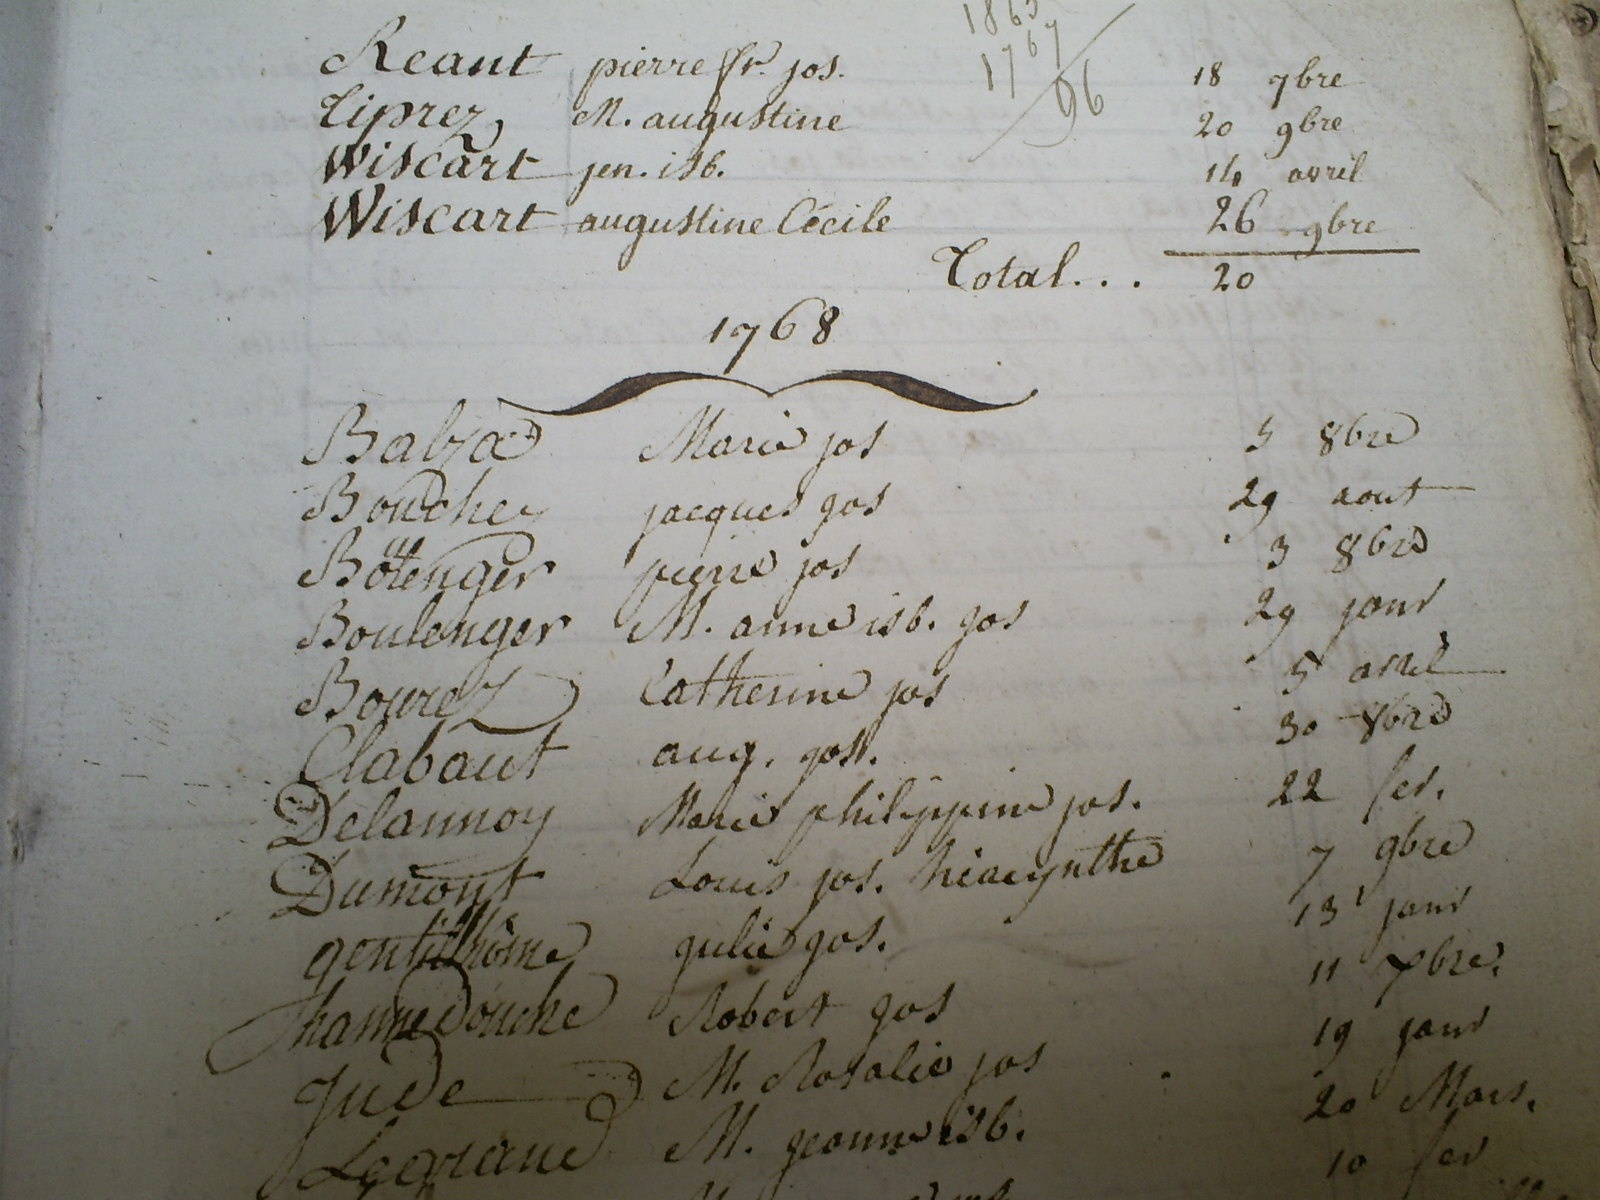 1863
1767
96
Reant pierre fr. jos. 18 7bre
Tiprez M. augustine 20 9bre
Wiscart jen. isb. 14 avril
Wiscart augustine Cécile 26 9bre
Total... 20
1768
Balza Marie jos 5 8bre
Bouchez jacques jos 29 aout
pierre jos 3 8bre
Boulenger M. anne isb. jos 29 janv
Bourez Catherine jos 5 avril
Clabaut aug. jos. 30 8bre
Delannoy Marie philippine jos. 22 fev.
Dumont Louis jos. hiacynthe 7 9bre
gentilhôme julie jos. 13 janv
hannedouche Robert jos 11 7bre.
Jude M. Rosalie jos 19 janv
Legrand M. jeanne isb. 20 Mars.
10 fev